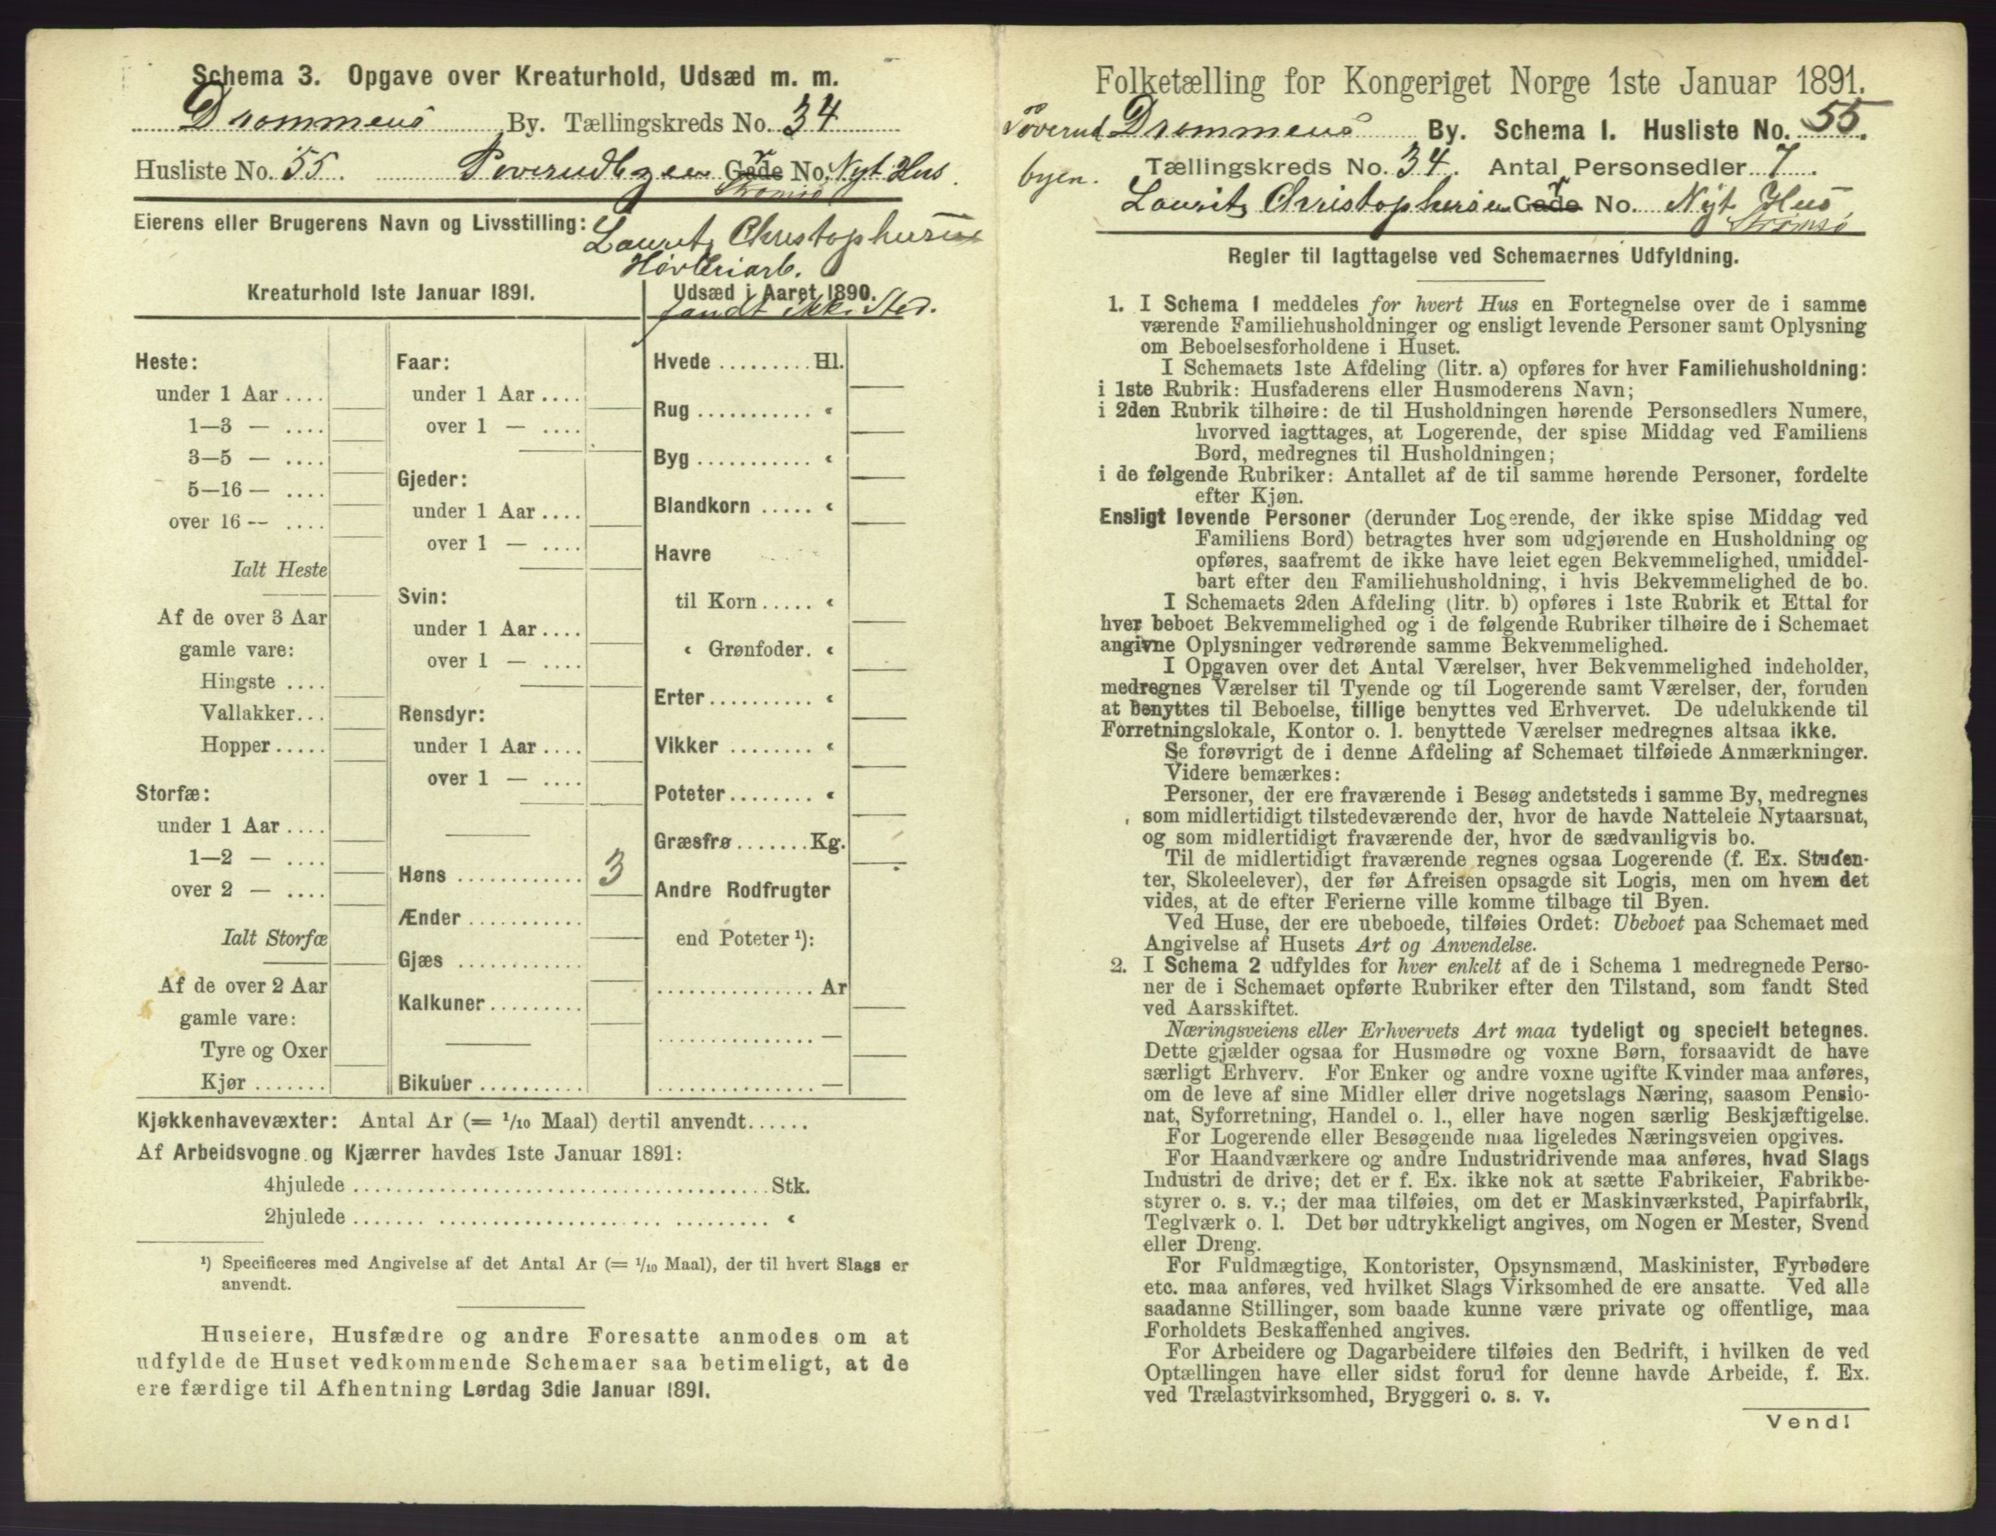 Schema 3. Opgave over Kreaturhold, Udsæd m. m.
Drammens By. Tællingskreds No. 34
Husliste No. 55. Toverudbyen Gade No. Nyt Hus.
Strømsø
Eierens eller Brugerens Navn og Livsstilling: Lauritz Christophersen
Høvleriarb.
Kreaturhold 1ste Januar 1891.
Heste:
under 1 Aar ....
1—3 — ....
3—5 — ....
5—16 — ....
over 16 — ....
Ialt Heste
Af de over 3 Aar
gamle vare:
Hingste ....
Vallakker...
Hopper .....
Storfæ:
under 1 Aar ....
1—2 — ....
over 2 — ....
Ialt Storfæ
Af de over 2 Aar
gamle vare:
Tyre og Oxer
Kjør .......
Faar:
under 1 Aar ....
over 1 — ....
Gjeder:
under 1 Aar ....
over 1 — ....
Svin:
under 1 Aar ....
over 1 — ....
Rensdyr:
under 1 Aar ....
over 1 — ....
Høns ............ 3
Ænder ...........
Gjæs ............
Kalkuner.........
Bikuber ..........
Udsæd i Aaret 1890.
fandt ikke Sted.
Hvede ......... Hl.
Rug ........... «
Byg ........... «
Blandkorn ..... «
Havre
til Korn..... «
« Grønfoder. «
Erter.......... «
Vikker ........ «
Poteter........ «
Græsfrø ....... Kg.
Andre Rodfrugter
end Poteter ¹):
............... Ar
............... —
............... —
Kjøkkenhavevæxter: Antal Ar (= 1/10 Maal) dertil anvendt......
Af Arbeidsvogne og Kjærrer havdes 1ste Januar 1891:
4hjulede ........................................ Stk.
2hjulede ........................................ «
¹) Specificeres med Angivelse af det Antal Ar (= 1/10 Maal), der til hvert Slags er
anvendt.
Huseiere, Husfædre og andre Foresatte anmodes om at
udfylde de Huset vedkommende Schemaer saa betimeligt, at de
ere færdige til Afhentning Lørdag 3die Januar 1891.
Folketælling for Kongeriget Norge 1ste Januar 1891.
Toverud Drammens By. Schema I. Husliste No. 55.
byen. Tællingskreds No. 34. Antal Personsedler 7.
Lauritz Christophersen Gade No. Nyt Hus
Strømsø
Regler til Iagttagelse ved Schemaernes Udfyldning.
1. I Schema 1 meddeles for hvert Hus en Fortegnelse over de i samme
værende Familiehusholdninger og ensligt levende Personer samt Oplysning
om Beboelsesforholdene i Huset.
I Schemaets 1ste Afdeling (litr. a) opføres for hver Familiehusholdning:
i 1ste Rubrik: Husfaderens eller Husmoderens Navn;
i 2den Rubrik tilhøire: de til Husholdningen hørende Personsedlers Numere,
hvorved iagttages, at Logerende, der spise Middag ved Familiens
Bord, medregnes til Husholdningen;
i de følgende Rubriker: Antallet af de til samme hørende Personer, fordelte
efter Kjøn.
Ensligt levende Personer (derunder Logerende, der ikke spise Middag ved
Familiens Bord) betragtes hver som udgjørende en Husholdning og
opføres, saafremt de ikke have leiet egen Bekvemmelighed, umiddel-
bart efter den Familiehusholdning, i hvis Bekvemmelighed de bo.
I Schemaets 2den Afdeling (litr. b) opføres i 1ste Rubrik et Ettal for
hver beboet Bekvemmelighed og i de følgende Rubriker tilhøire de i Schemaet
angivne Oplysninger vedrørende samme Bekvemmelighed.
I Opgaven over det Antal Værelser, hver Bekvemmelighed indeholder,
medregnes Værelser til Tyende og til Logerende samt Værelser, der, foruden
at benyttes til Beboelse, tillige benyttes ved Erhvervet. De udelukkende til
Forretningslokale, Kontor o. l. benyttede Værelser medregnes altsaa ikke.
Se forøvrigt de i denne Afdeling af Schemaet tilføiede Anmærkninger.
Videre bemærkes:
Personer, der ere fraværende i Besøg andetsteds i samme By, medregnes
som midlertidigt tilstedeværende der, hvor de havde Natteleie Nytaarsnat,
og som midlertidigt fraværende der, hvor de sædvanligvis bo.
Til de midlertidigt fraværende regnes ogsaa Logerende (f. Ex. Studen-
ter, Skoleelever), der før Afreisen opsagde sit Logis, men om hvem det
vides, at de efter Ferierne ville komme tilbage til Byen.
Ved Huse, der ere ubeboede, tilføies Ordet: Ubeboet paa Schemaet med
Angivelse af Husets Art og Anvendelse.
2. I Schema 2 udfyldes for hver enkelt af de i Schema 1 medregnede Perso-
ner de i Schemaet opførte Rubriker efter den Tilstand, som fandt Sted
ved Aarsskiftet.
Næringsveiens eller Erhvervets Art maa tydeligt og specielt betegnes.
Dette gjælder ogsaa for Husmødre og voxne Børn, forsaavidt de have
særligt Erhverv. For Enker og andre voxne ugifte Kvinder maa anføres,
om de leve af sine Midler eller drive nogetslags Næring, saasom Pensio-
nat, Syforretning, Handel o. l., eller have nogen særlig Beskjæftigelse.
For Logerende eller Besøgende maa ligeledes Næringsveien opgives.
For Haandværkere og andre Industridrivende maa anføres, hvad Slags
Industri de drive; det er f. Ex. ikke nok at sætte Fabrikeier, Fabrikbe-
styrer o. s. v.; der maa tilføies, om det er Maskinværksted, Papirfabrik,
Teglværk o. l. Det bør udtrykkeligt angives, om Nogen er Mester, Svend
eller Dreng.
For Fuldmægtige, Kontorister, Opsynsmænd, Maskinister, Fyrbødere
etc. maa anføres, ved hvilket Slags Virksomhed de ere ansatte. Ved alle
saadanne Stillinger, som baade kunne være private og offentlige, maa
Forholdets Beskaffenhed angives.
For Arbeidere og Dagarbeidere tilføies den Bedrift, i hvilken de ved
Optællingen have eller sidst forud for denne havde Arbeide, f. Ex.
ved Trælastvirksomhed, Bryggeri o. s. v.
Vend!